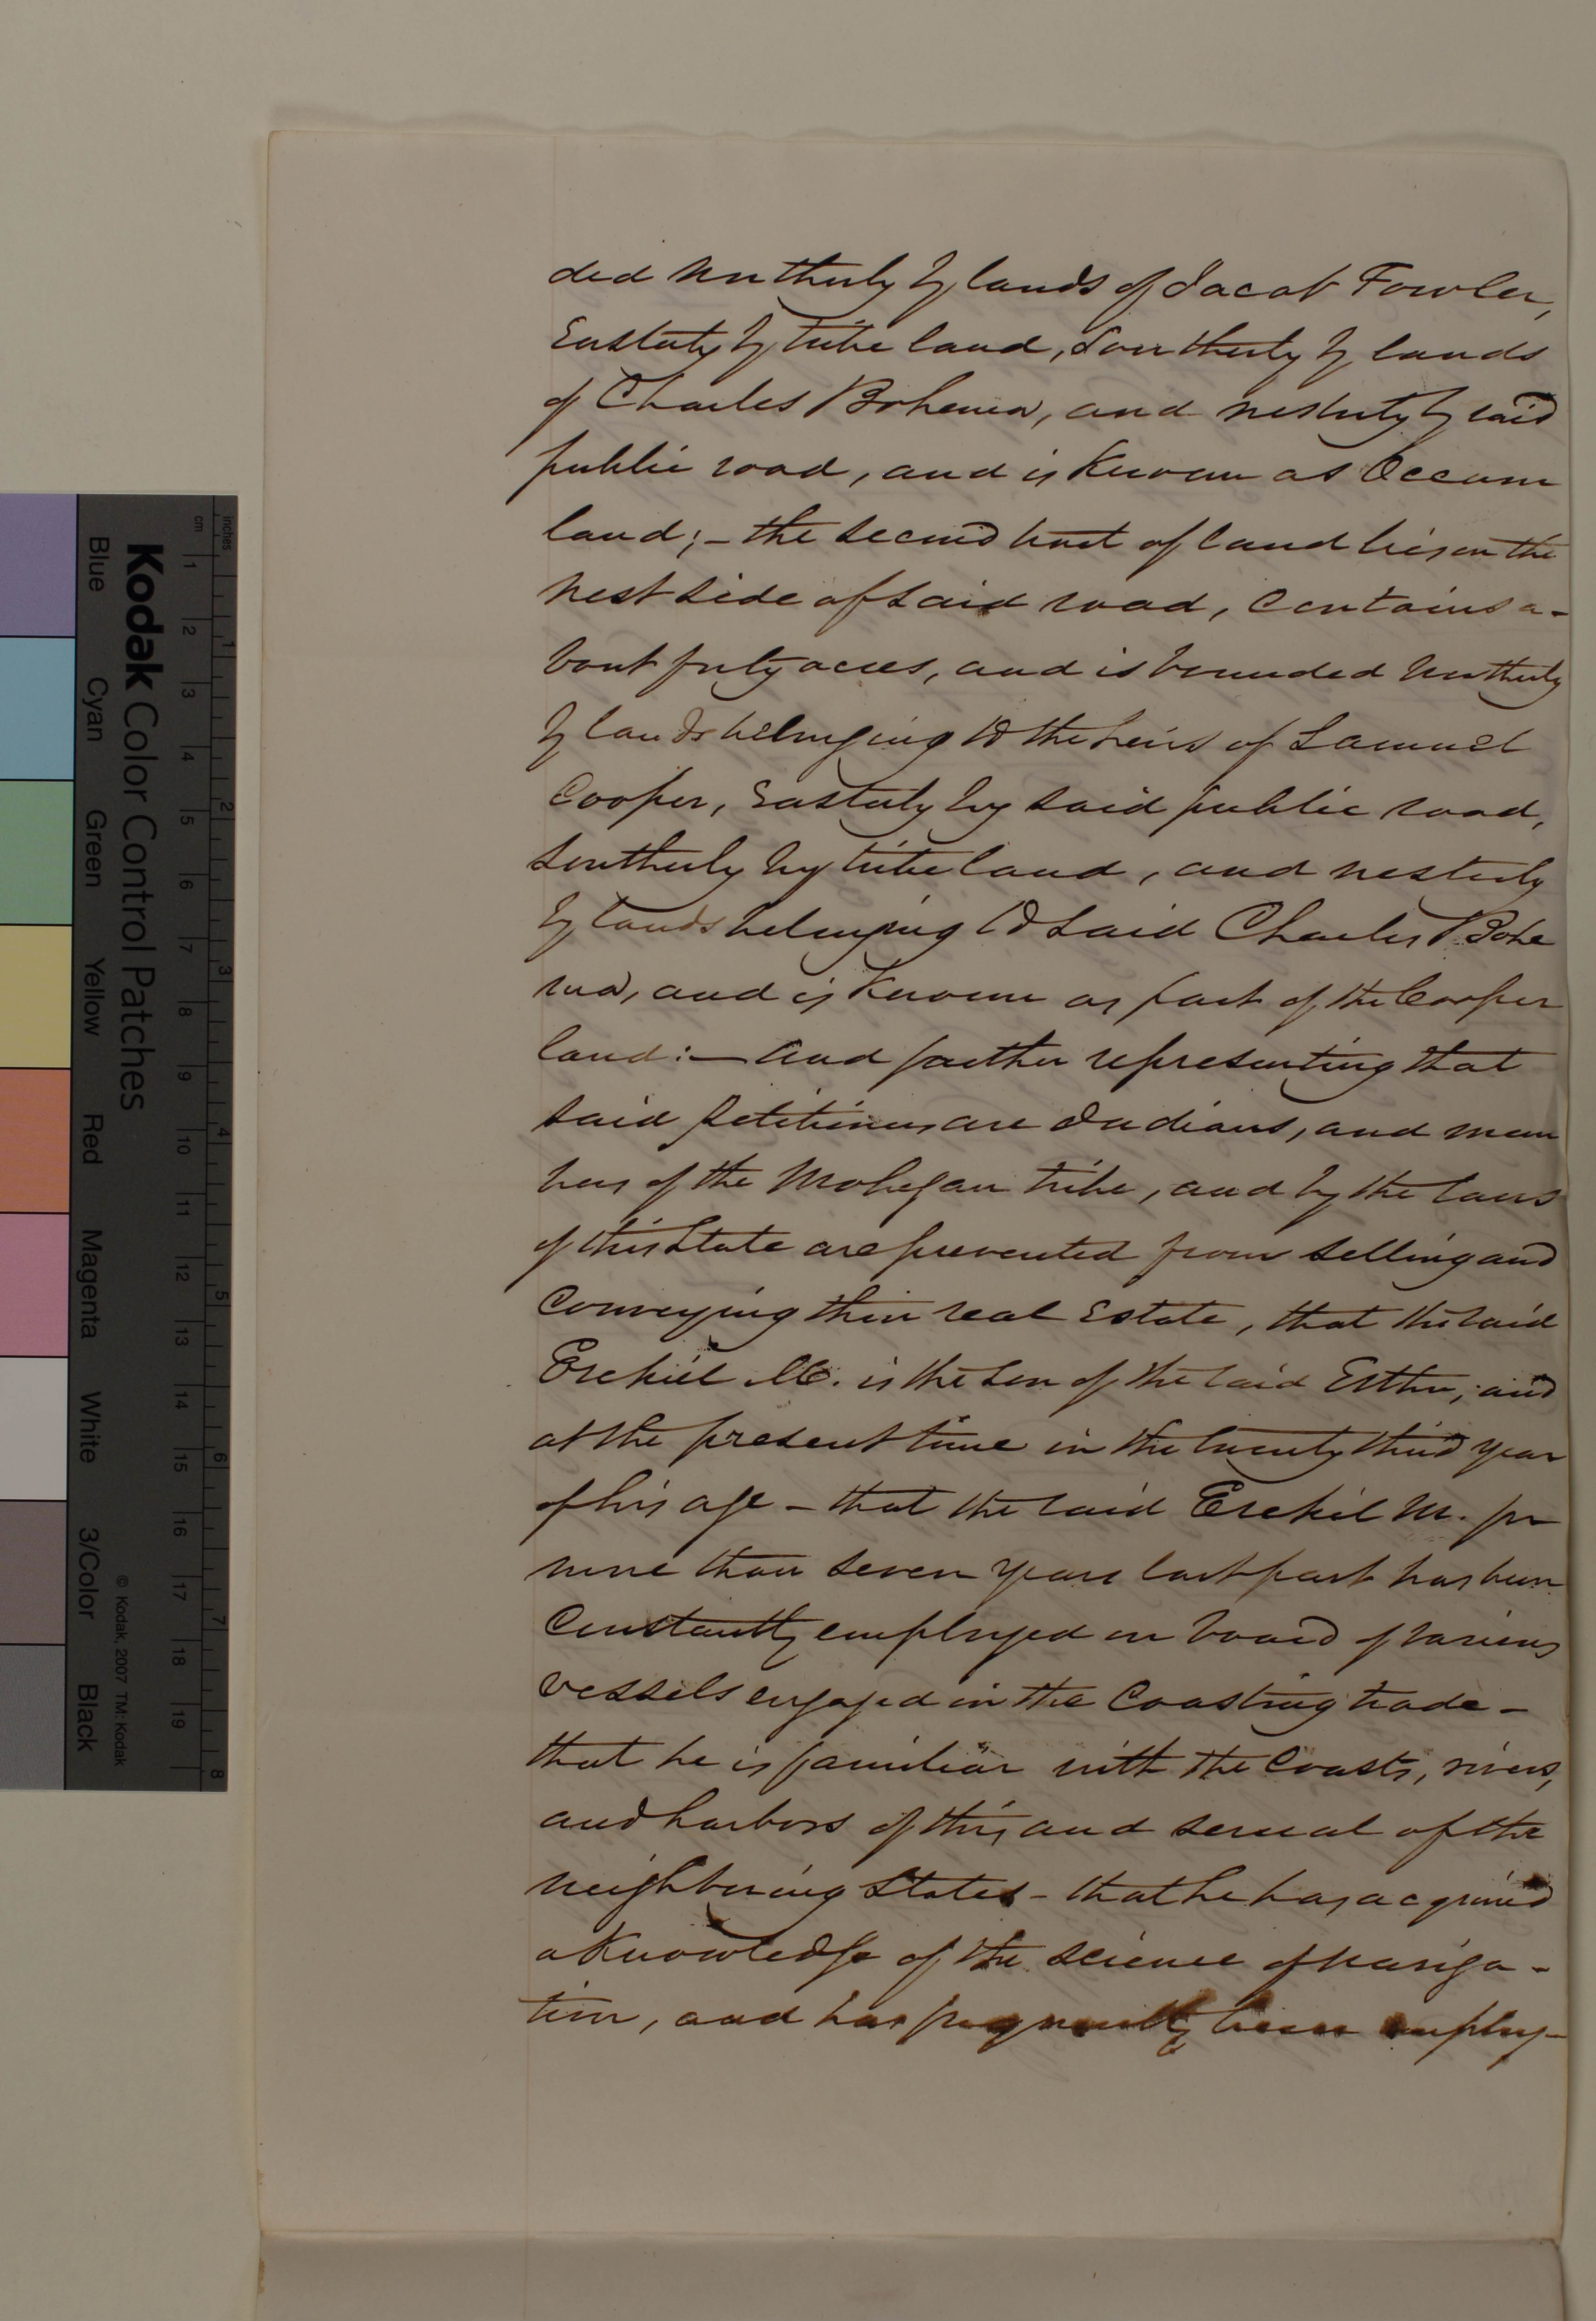 ded Northerly by lands of Jacob Fowler,
Easterly by tribe land, Southerly by lands
of Charles Bohema, and westerly by said
public road, and is known as Occum
land; – the second tract of land lies on the
West side of said road, contains a-
bout forty acres, and is bounded Northerly
by lands belonging to the heirs of Samuel
Cooper, Easterly by said public road,
Southerly by tribe land, and westerly
by lands belonging to said Charles Bohe
ma, and is known as part of the Cooper
land: – and further representing that
said petitioners are Indians, and mem
bers of the Mohegan tribe, and by the laws
of this State are prevented from selling and
Conveying their real Estate, that the said
Ezekiel M. is the son of the said Esther, and
at the present time in the twenty third year
of his age – that the said Ezekiel M. for
more than seven years last past has been
Constantly employed on board of various
vessels engaged in the Coasting trade –
that he is familiar with the Coasts, rivers,
and harbors of this and several of the
neighboring States – that he has acquired
a knowledge of the science of naviga-
tion, and has frequently been employ-
Kodak Color Control Patches
Blue Cyan Green Yellow Red Magenta White 3/Color Black
© Kodak, 2007 TM: Kodak
inches 1 2 3 4 5 6 7 8
cm 1 2 3 4 5 6 7 8 9 10 11 12 13 14 15 16 17 18 19